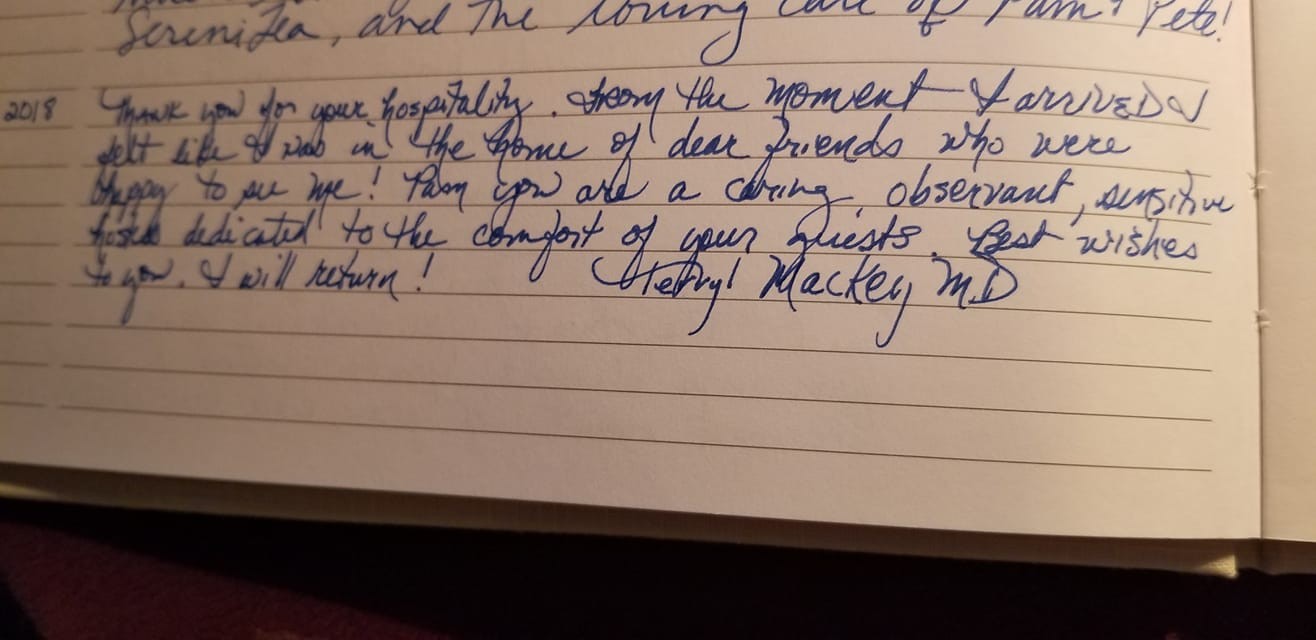 SereniTea, and The loving care of Pam & Pete!
2018 Thank you for your hospitality. From the moment I arrived I
felt like I was in the home of dear friends who were
happy to see me! Pam you are a caring, observant, sensitive
dedicated to the comfort of your guests. Best wishes
to you. I will return!
Mackey M.D